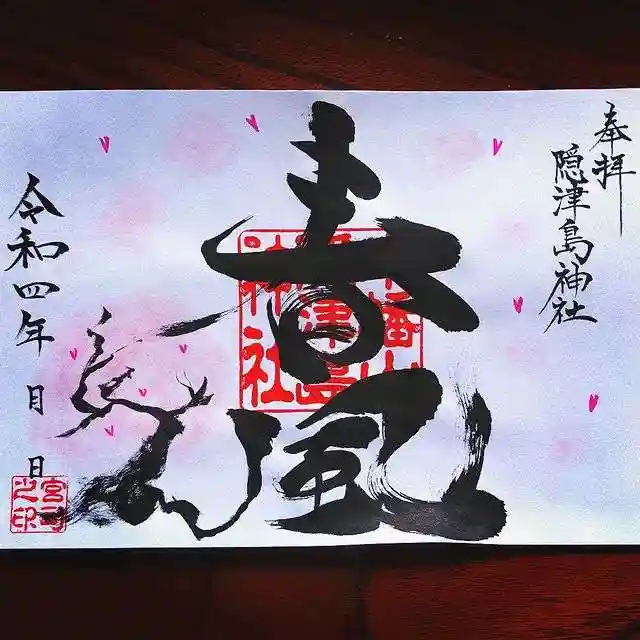 奉拝
隠津島神社
春風
木幡山
隠津島
神社
令和四年 月 日
宮司
之印